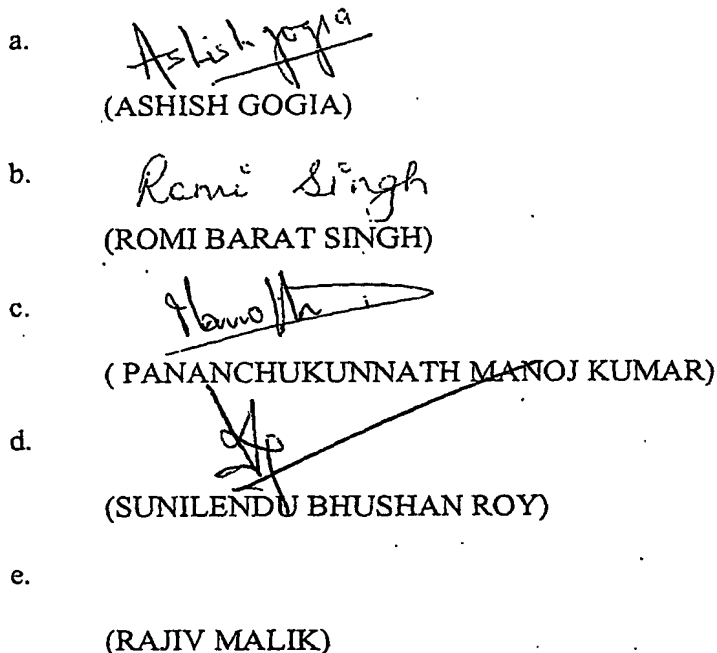 a.
Ashish gogia
(ASHISH GOGIA)
b.
Romi Singh
(ROMI BARAT SINGH)
c.
(PANANCHUKUNNATH MANOJ KUMAR)
d.
(SUNILENDU BHUSHAN ROY)
e.
(RAJIV MALIK)